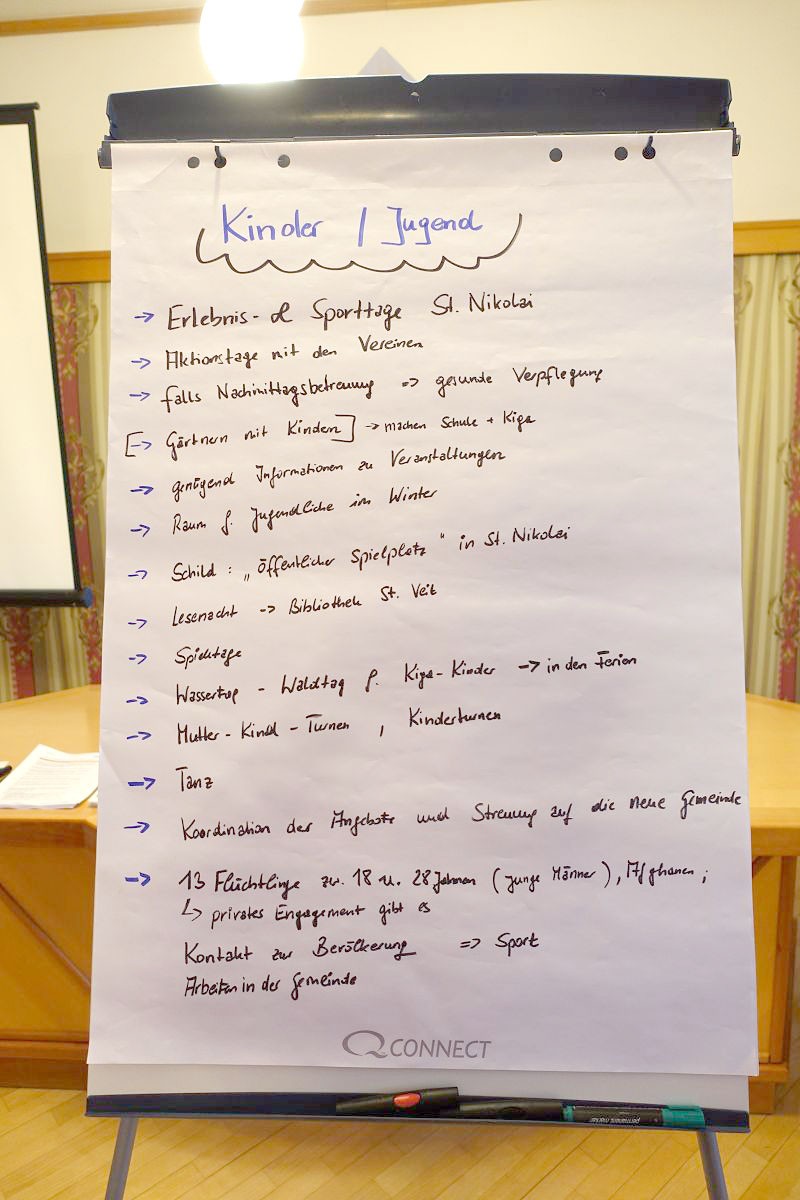 Kinder / Jugend
→ Erlebnis- & Sporttage St. Nikolai
→ Aktionstage mit den Vereinen
→ falls Nachmittagsbetreuung => gesunde Verpflegung
[→ Gärtnern mit Kindern] → machen Schule + Kiga
→ genügend Informationen zu Veranstaltungen
→ Raum f. Jugendliche im Winter
→ Schild: „öffentlicher Spielplatz" in St. Nikolai
→ Lesenacht → Bibliothek St. Veit
→ Spieltage
→ Wassertag - Waldtag f. Kiga-Kinder → in den Ferien
→ Mutter-Kind-Turnen, Kinderturnen
→ Tanz
→ Koordination der Angebote und Streuung auf die neue Gemeinde
→ 13 Flüchtlinge zw. 18 u. 28 Jahren (junge Männer), Afghanen;
↳ privates Engagement gibt es
Kontakt zur Bevölkerung => Sport
Arbeiten in der Gemeinde
Q CONNECT
permanent marker